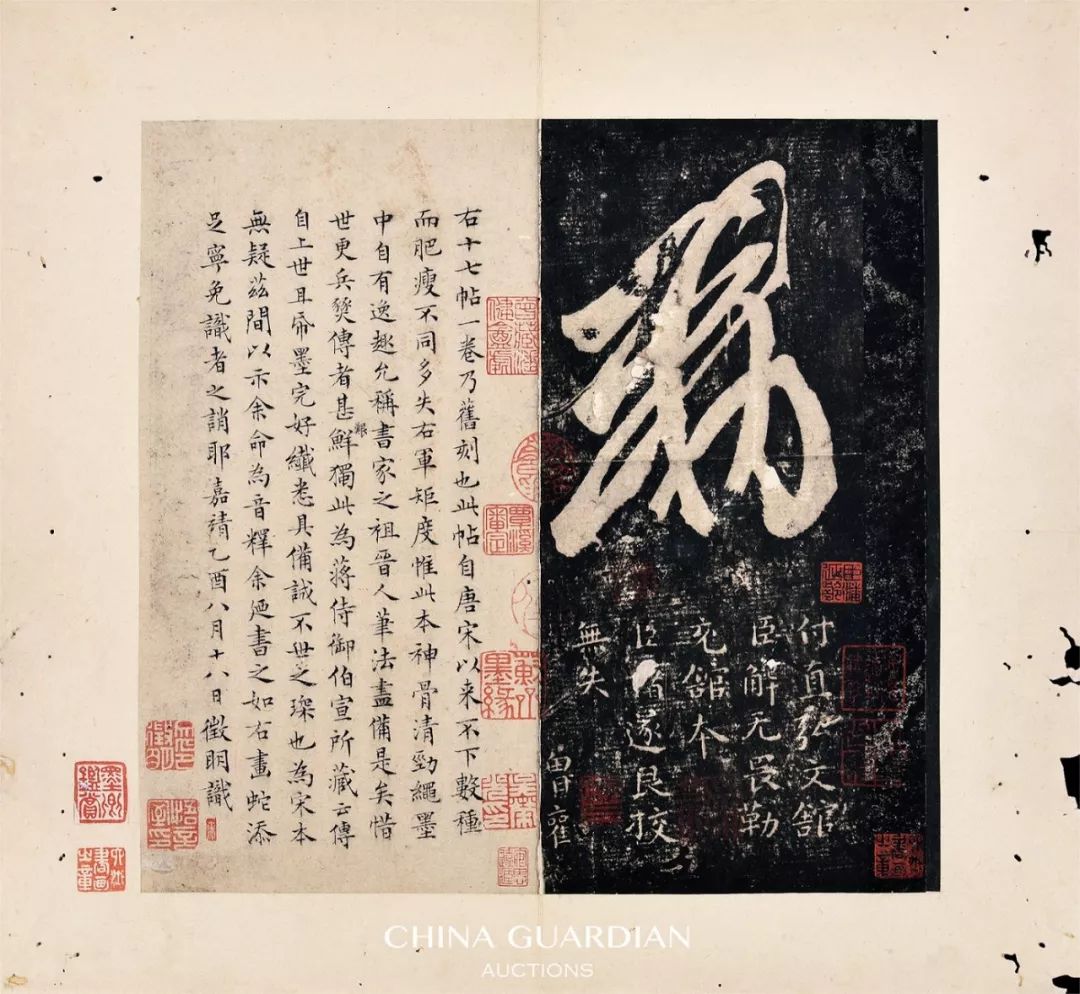 敕
付直弘文館
臣解无畏勒
充館本
臣褚遂良校
無失
曾雚
右十七帖一卷乃舊刻也此帖自唐宋以来不下數種
而肥瘦不同多失右軍矩度惟此本神骨清勁繩墨
中自有逸趣允稱書家之祖晉人筆法盡備是矣惜
世更兵燹傳者甚鮮獨此為蔣侍御伯宣所藏云傳
自上世且帋墨完好纖悉具備誠不世之琛也為宋本
無疑茲間以示余命為音釋余廼書之如右畫蛇添
足寧免識者之誚耶嘉靖乙酉八月十八日徵明識
覃溪審定
悟言室印
墨卿鑑賞
CHINA GUARDIAN
AUCTIONS